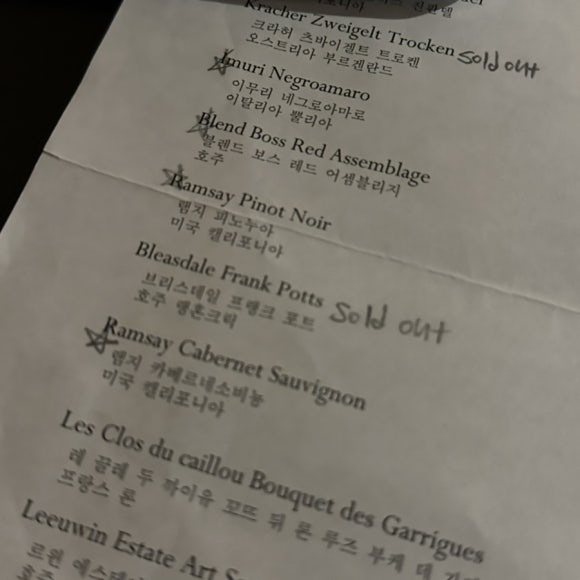 Kracher Zweigelt Trocken Sold out
크라허 츠바이겔트 트로켄
오스트리아 부르겐란드
Imuri Negroamaro
이무리 네그로아마로
이탈리아 뿔리아
Blend Boss Red Assemblage
블렌드 보스 레드 어셈블리지
호주
Ramsay Pinot Noir
램지 피노누아
미국 캘리포니아
Bleasdale Frank Potts Sold out
브리스데일 프랭크 포트
호주 랭혼크릭
Ramsay Cabernet Sauvignon
램지 카베르네소비뇽
미국 캘리포니아
Les Clos du caillou Bouquet des Garrigues
레 끌레 두 까이유 꼬뜨 뒤 론 루즈 부케 데
프랑스 론
Leeuwin Estate Art
르윈
호주